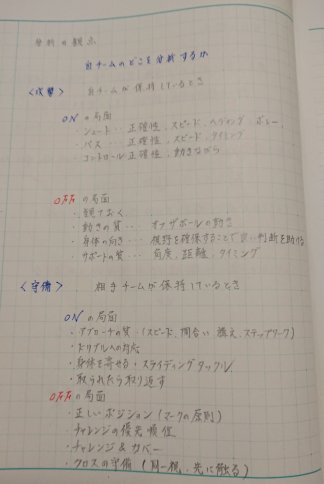 分析の観点
自チームのどこを分析するか
<攻撃> 自チームが保持しているとき
ONの局面
・シュート… 正確性、スピード、ヘディング、ボレー
・パス… 正確性、スピード、タイミング
・コントロール 正確性、動きながら
OFFの局面
・観ておく
・動きの質… オフザボールの動き
・身体の向き… 視野を確保することで良い判断を助ける
・サポートの質… 角度、距離、タイミング
<守備> 相手チームが保持しているとき
ONの局面
・アプローチの質…(スピード、間合い、構え、ステップワーク)
・ドリブルへの対応
・身体を寄せる・スライディングタックル
・取られたら取り返す
OFFの局面
・正しいポジション(マークの原則)
・チャレンジの優先順位
・チャレンジ&カバー
・クロスの守備(同一視、先に触る)